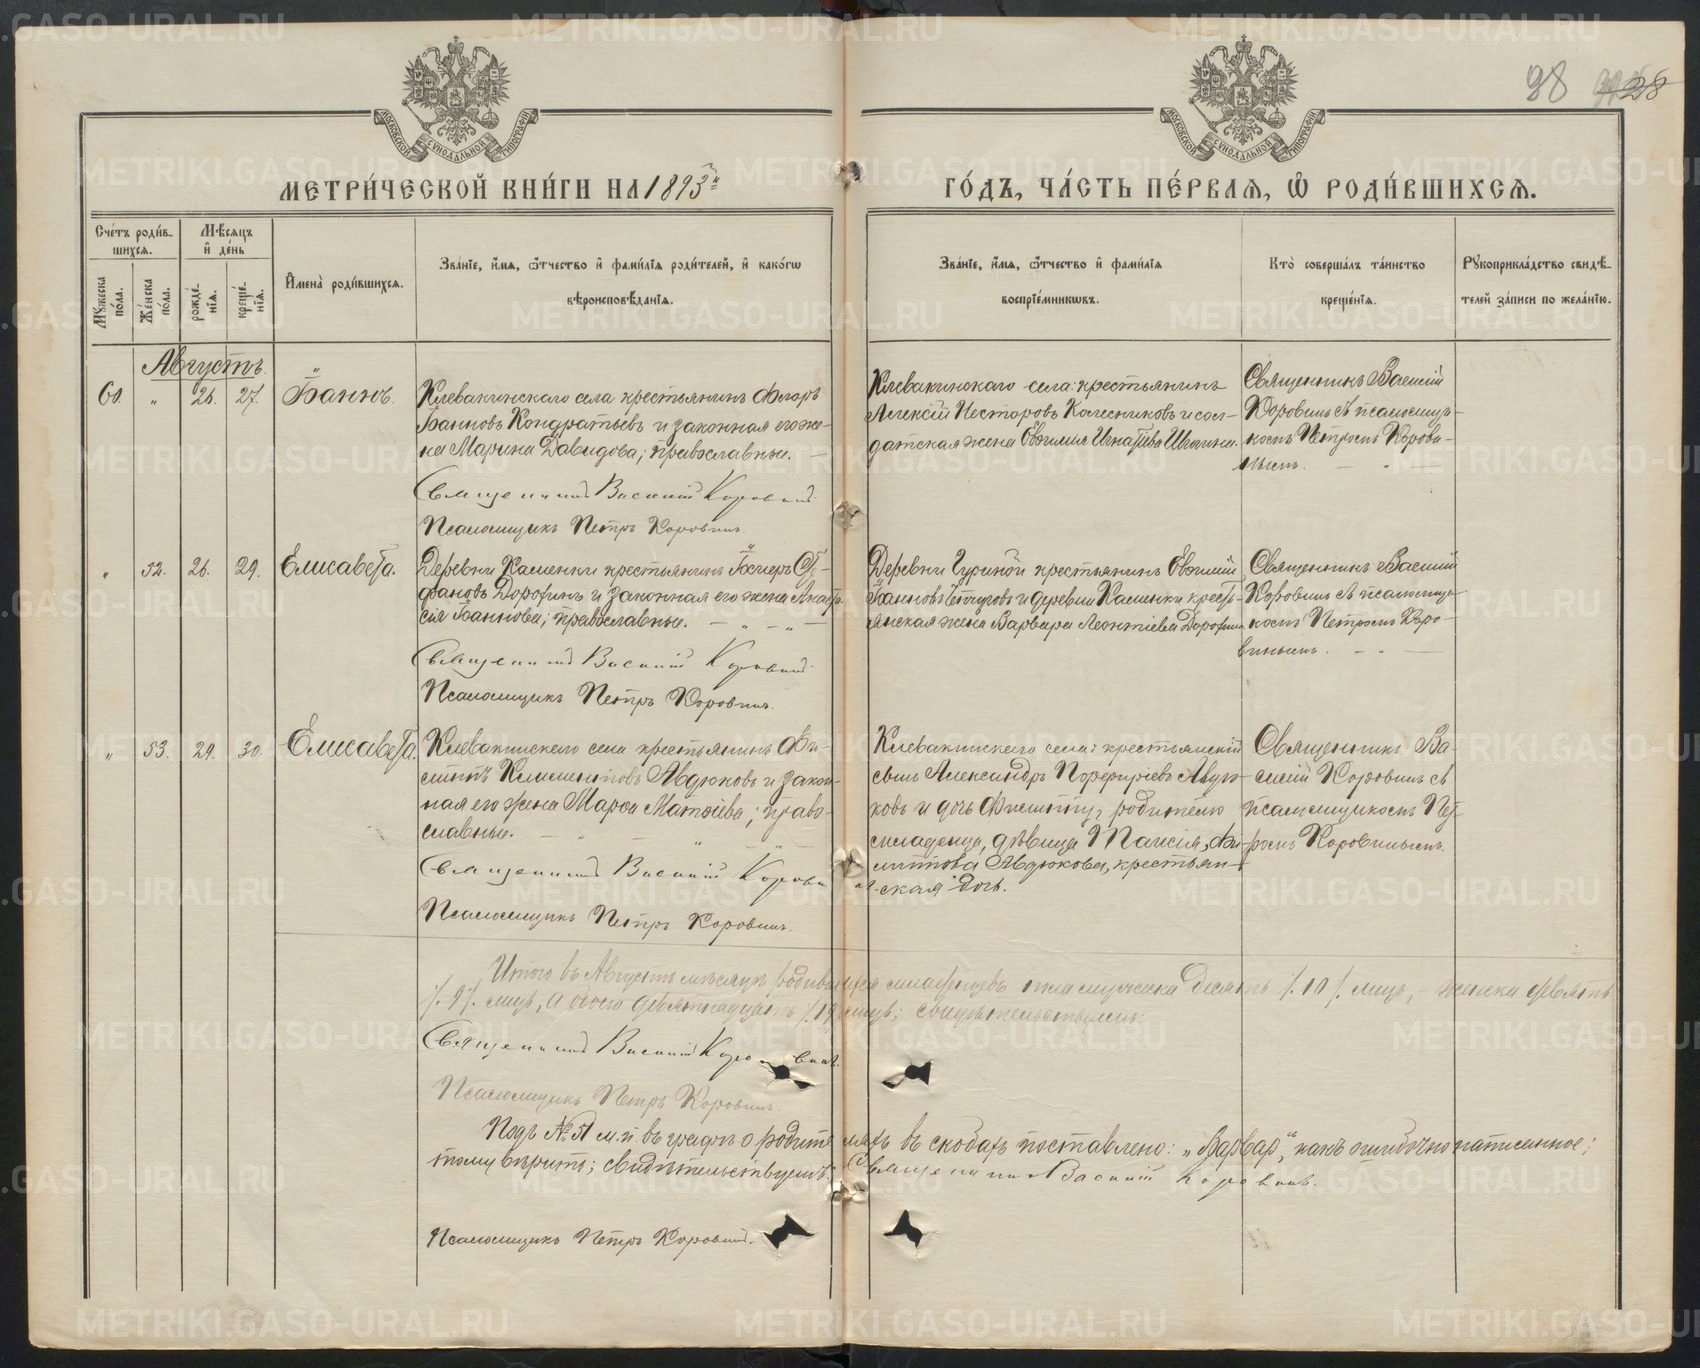 98 28
МОСКОВСКОЙ СѴНОДАЛЬНОЙ ТИПОГРАФІИ
МОСКОВСКОЙ СѴНОДАЛЬНОЙ ТИПОГРАФІИ
МЕТРИ́ЧЕСКОЙ КНИ́ГИ НА 1893й
ГО́ДЪ, ЧА́СТЬ ПЕ́РВАѦ, Ѡ҆ РОДИ́ВШИХСѦ.
Сче́тъ роди́в-
шихсѧ.
Мѣ́сѧцъ
и҆ де́нь
Мꙋ́жеска по́ла.
Же́нска по́ла.
рожде́-нїѧ.
креще́-нїѧ.
И҆мена̀ роди́вшихсѧ.
Зва́нїе, и҆́мѧ, ѻ҆́тчество и҆ фами́лїѧ роди́телей, и҆ како́гѡ
вѣроисповѣ́данїѧ.
Зва́нїе, и҆́мѧ, ѻ҆́тчество и҆ фами́лїѧ
воспрїе́мникѡвъ.
Кто̀ соверша́лъ та́инство
креще́нїѧ.
Рꙋкоприкла́дство свидѣ́-
телей за́писи по жела́нїю.
Августъ.
60 " 26. 27. Іаннъ.
Клевакинскаго села крестьянинъ Флоръ
Іанновъ Кондратьевъ и законная его же-
на Марина Давидова; православные.
Священникъ Василій Коровинъ.
Псаломщикъ Петръ Коровинъ.
Клевакинскаго села: крестьянинъ
Алексій Несторовъ Колесниковъ и сол-
датская жена Евѳимія Игнатіева
Священникъ Василій
Коровинъ съ псаломщи-
комъ Петромъ Корови-
нымъ. — " —
" 52. 26. 29. Елисавета.
Деревни Каменки крестьянинъ Сте-
фановъ Дорофинъ и законная его жена Анаста-
сія Іаннова; православные. — " — " —
Священникъ Василій Коровинъ.
Псаломщикъ Петръ Коровинъ.
Деревни крестьянинъ Евѳимій
Іанновъ и деревни Каменки кресть-
янская жена Варвара Леонтіева
Священникъ Василій
Коровинъ съ псаломщи-
комъ Петромъ Коро-
винымъ. — " —
" 53. 29. 30. Елисавета.
Клевакинскаго села крестьянинъ Фи-
липпъ Климентовъ Авдюковъ и закон-
ная его жена Марѳа Матѳіева; право-
славные. — " — " —
Священникъ Василій Коровинъ
Псаломщикъ Петръ Коровинъ.
Клевакинскаго села: крестьянскій
сынъ Александръ Порфиріевъ Авдю-
ковъ и дочь Филиппу, родителю
младенца, дѣвица Таисія, Фи-
липпова Авдюкова, крестьян-
ская дочь.
Священникъ Ва-
силій Коровинъ съ
псаломщикомъ Пет-
ромъ Коровинымъ.
Итого въ Августѣ мѣсяцѣ родившихся младенцевъ пола мужеска десять /.10/. лицъ, — женска девять
/.9/. лицъ, а обоего девятнадцать /.19 лицъ; свидѣтельствуемъ:
Священникъ Василій Коровинъ.
Псаломщикъ Петръ Коровинъ
Подъ № 51 м.п. въ графѣ о родителяхъ въ скобахъ поставлено: „Варвар", какъ ошибочно написанное;
тому вѣрить; свидѣтельствуемъ: Священникъ Василій Коровинъ.
Псаломщикъ Петръ Коровинъ.
METRIKI.GASO-URAL.RU